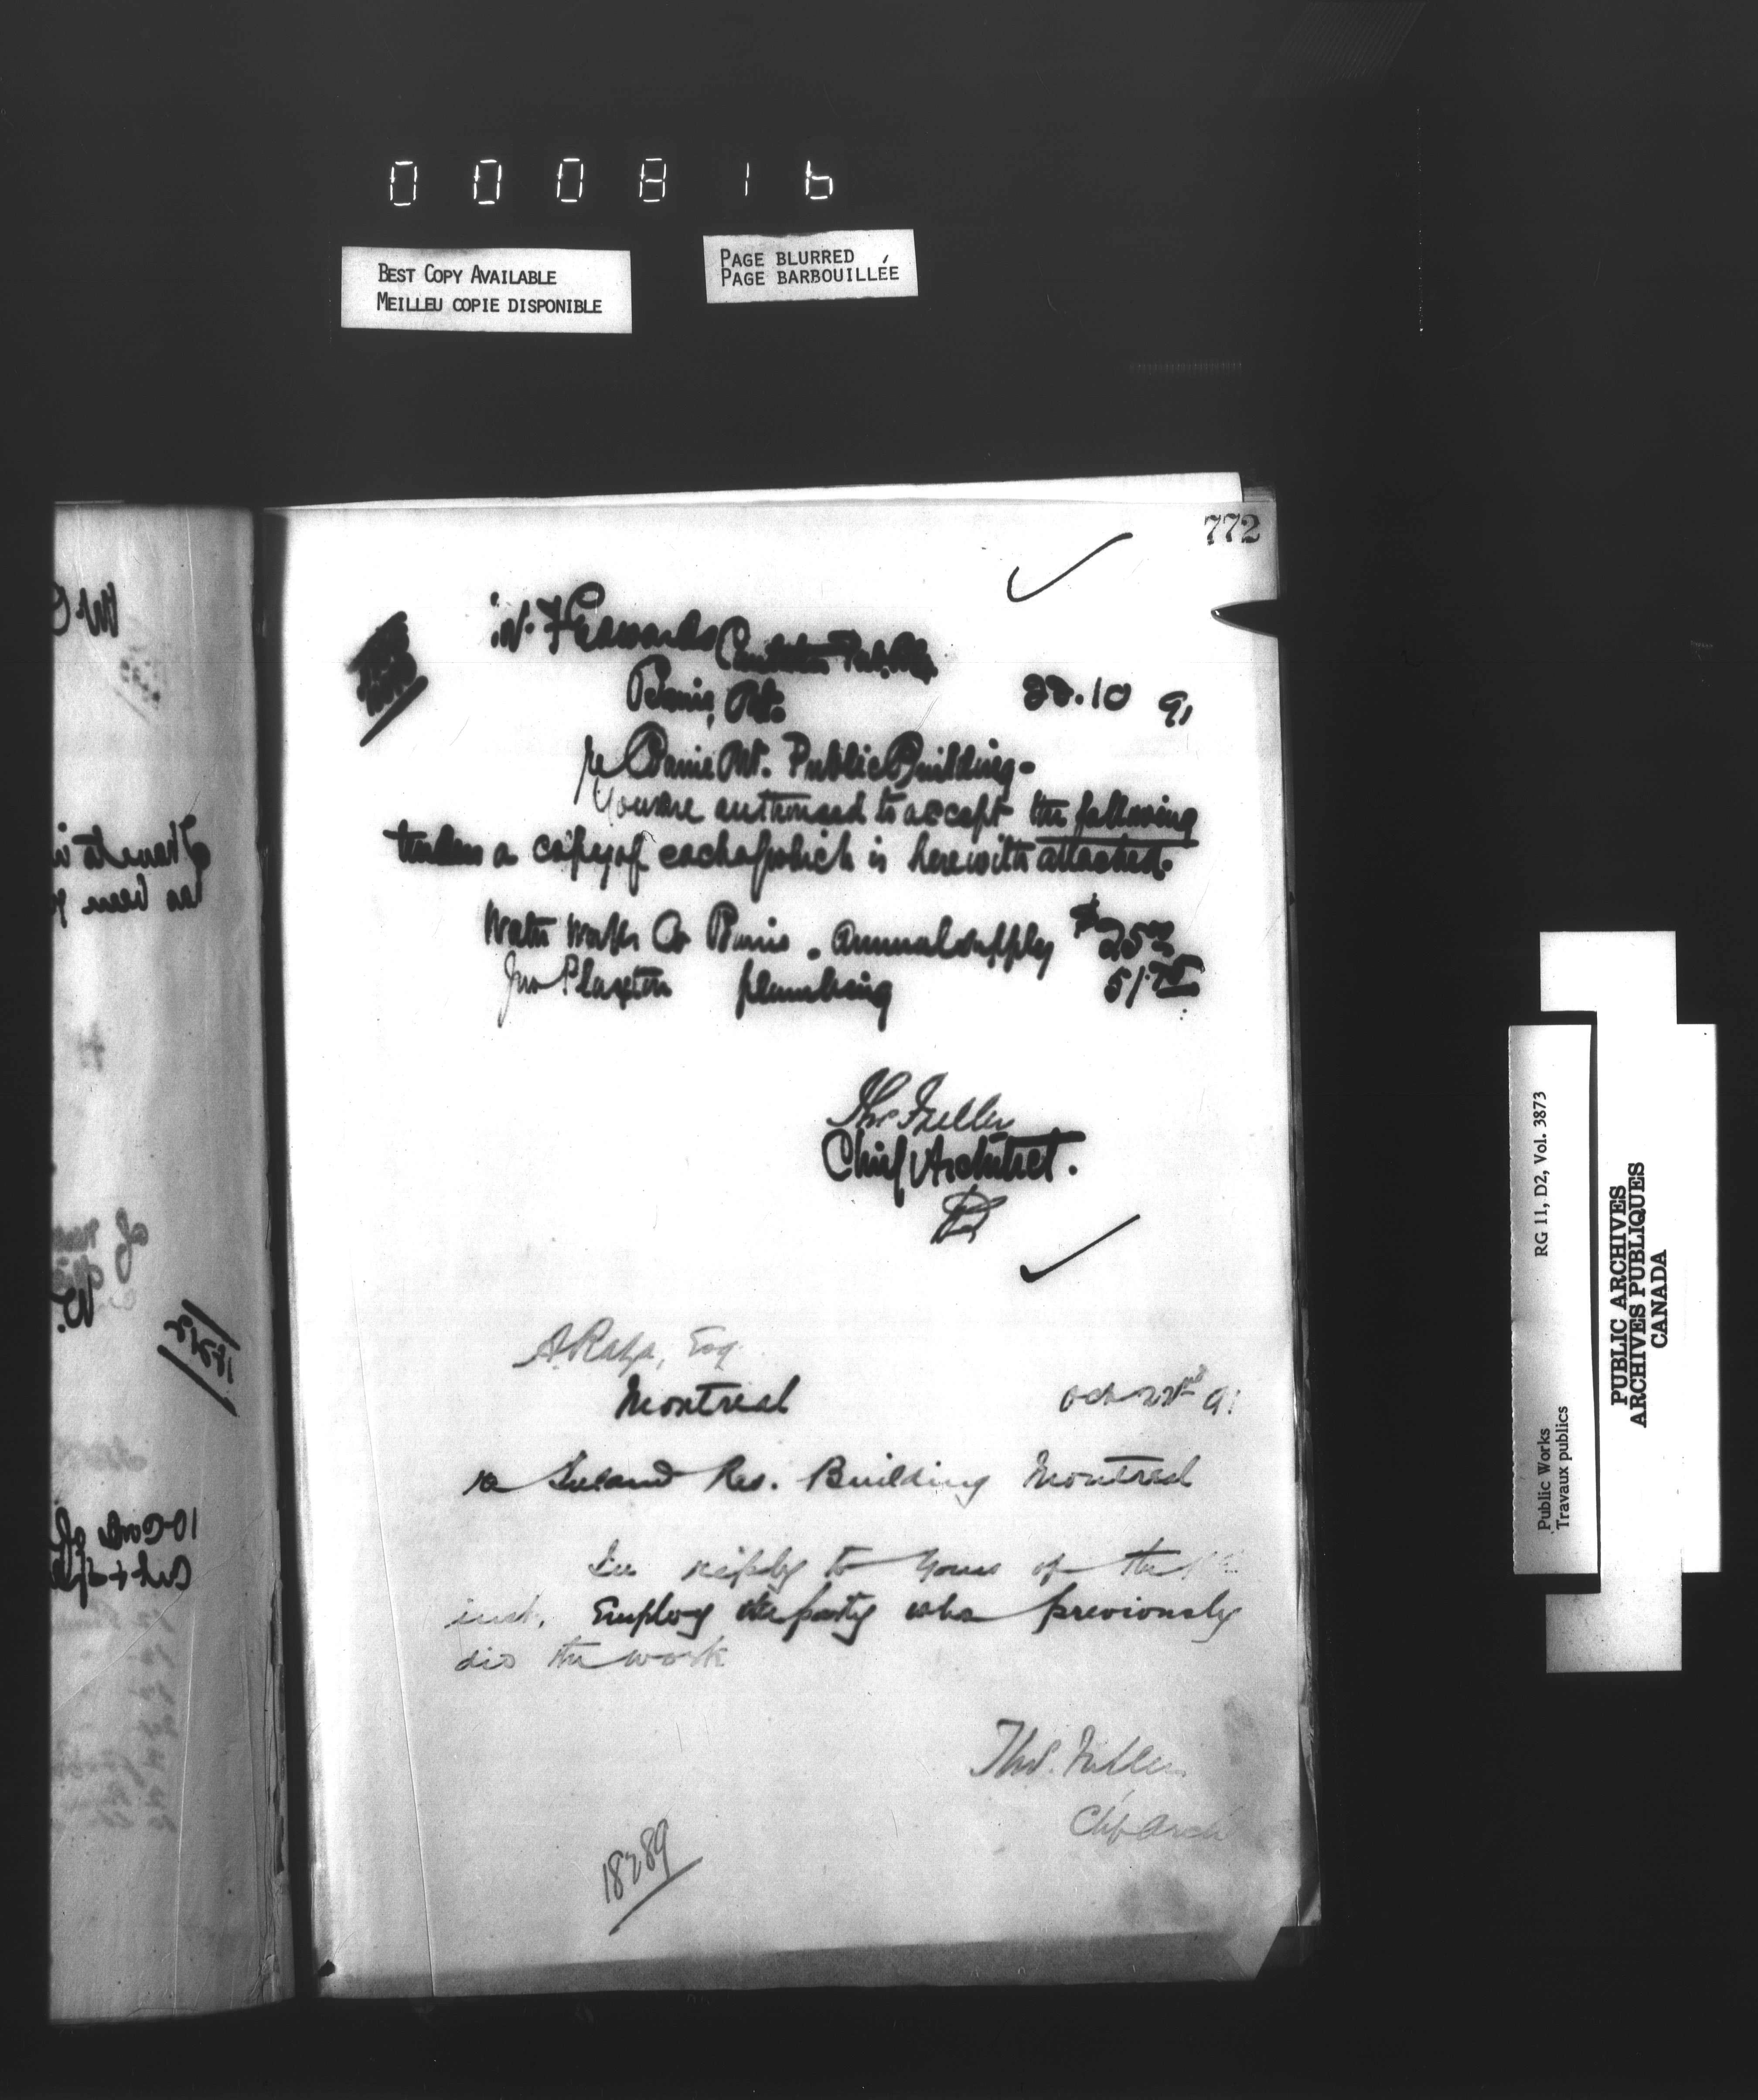 000816
BEST COPY AVAILABLE
MEILLEU COPIE DISPONIBLE
PAGE BLURRED
PAGE BARBOUILLÉE
772
W. F Edwards Caretaker Pub. Bldg
Barrie, Ont.
22.10 91
re Barrie Ont. Public Building -
You are authorised to accept the following
tenders a copy of each of which is herewith attached.
Water Works Co Barrie . annual supply $25.00
Jno Plaxton plumbing 51.75
Thos Fuller
Chief Architect.
A. Raza, Esq
Montreal
Oct 22nd 91
re Inland Rev. Building Montreal
In reply to yours of the
inst. Employ the party who previously
did the work
Thos. Fuller
Chf Arch
18289
Public Works
Travaux publics
RG 11, D2, Vol. 3873
PUBLIC ARCHIVES
ARCHIVES PUBLIQUES
CANADA